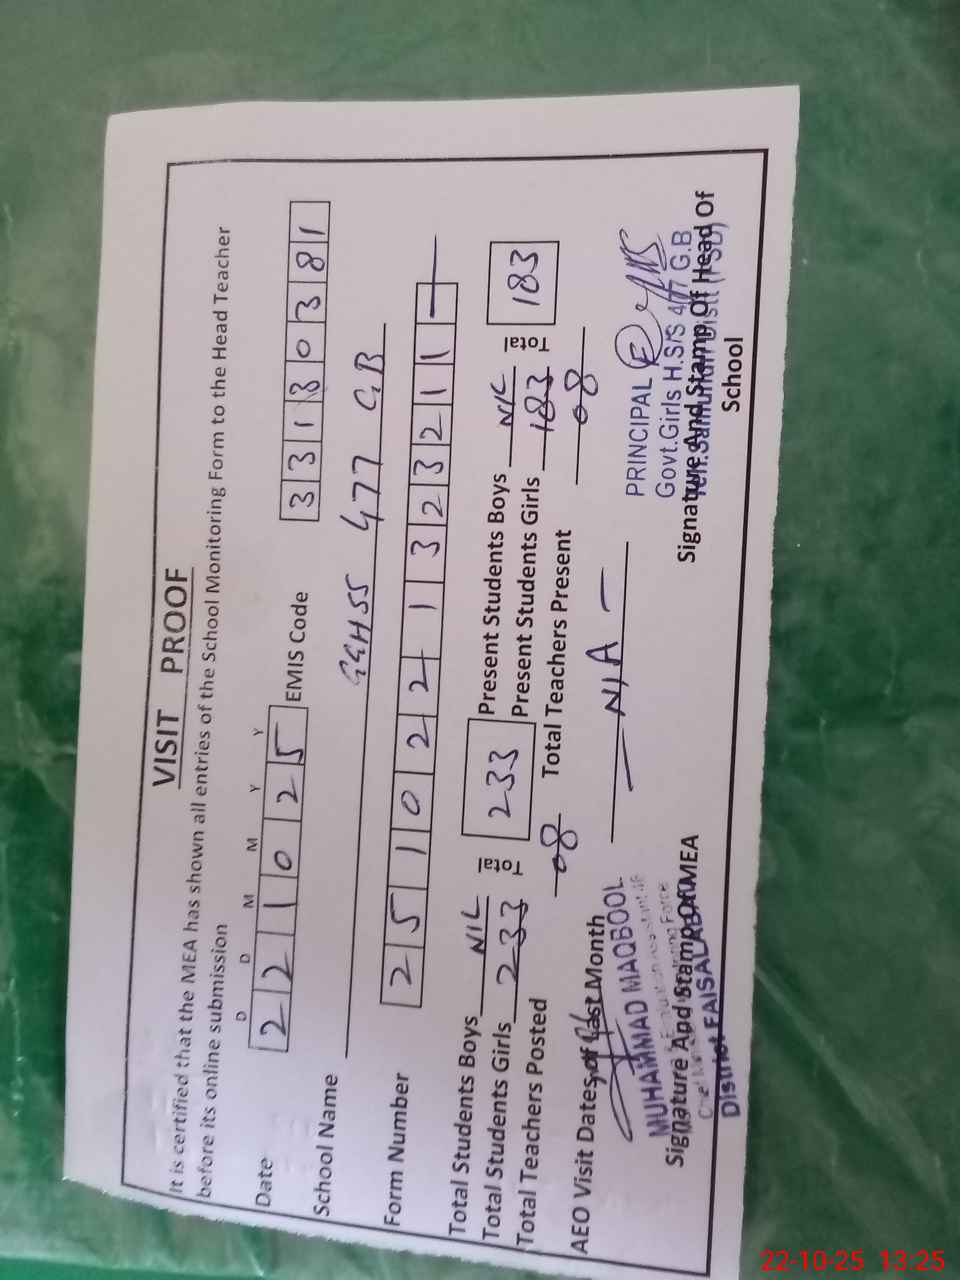 VISIT PROOF
It is certified that the MEA has shown all entries of the School Monitoring Form to the Head Teacher
before its online submission
D D M M Y Y
Date 2 2 1 0 2 5 EMIS Code 3 3 1 3 0 3 8 1
School Name GGHSS 477 GB
Form Number 2 5 1 0 2 2 1 3 2 3 2 1 1 —
Total Students Boys NIL Total 233 Present Students Boys NIL Total 183
Total Students Girls 233 Present Students Girls 183
Total Teachers Posted 08 Total Teachers Present 08
AEO Visit Dates of Last Month — N/A —
MUHAMMAD MAQBOOL
Signature And Stamp Of MEA
District FAISALABAD
PRINCIPAL
Govt.Girls H.S/S 477 G.B
Signature And Stamp Of Head Of
School
22-10-25 13:25